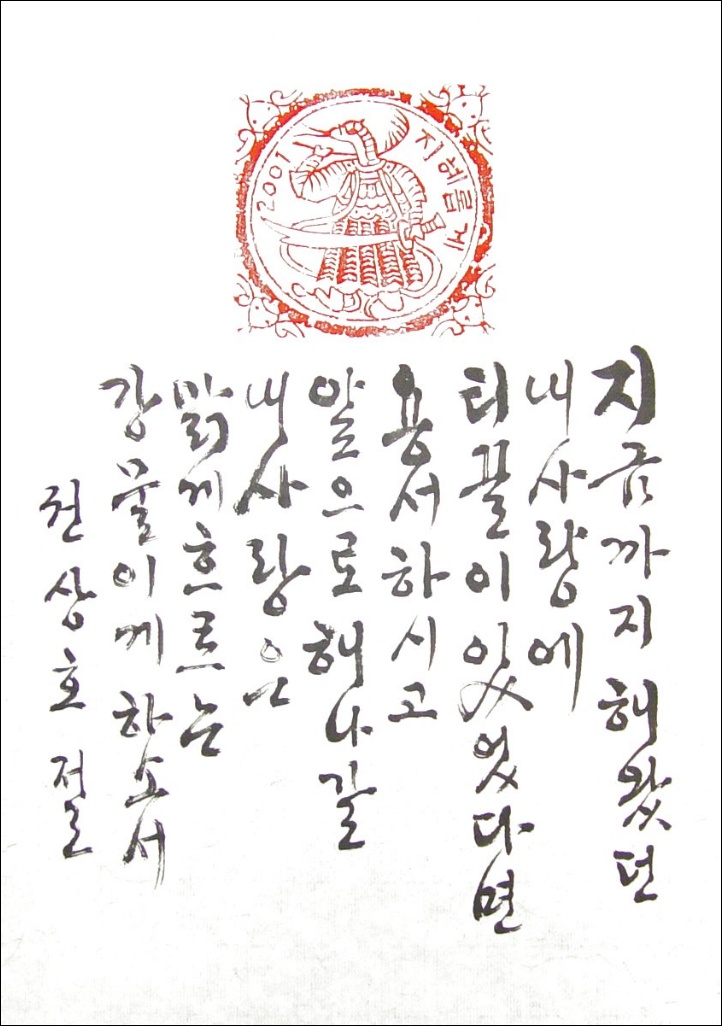 2001 지혜롭게
지금까지해왔던
내사랑에
티끌이있었다면
용서하시고
앞으로해나갈
내사랑은
맑게흐르는
강물이게하소서
권상호절